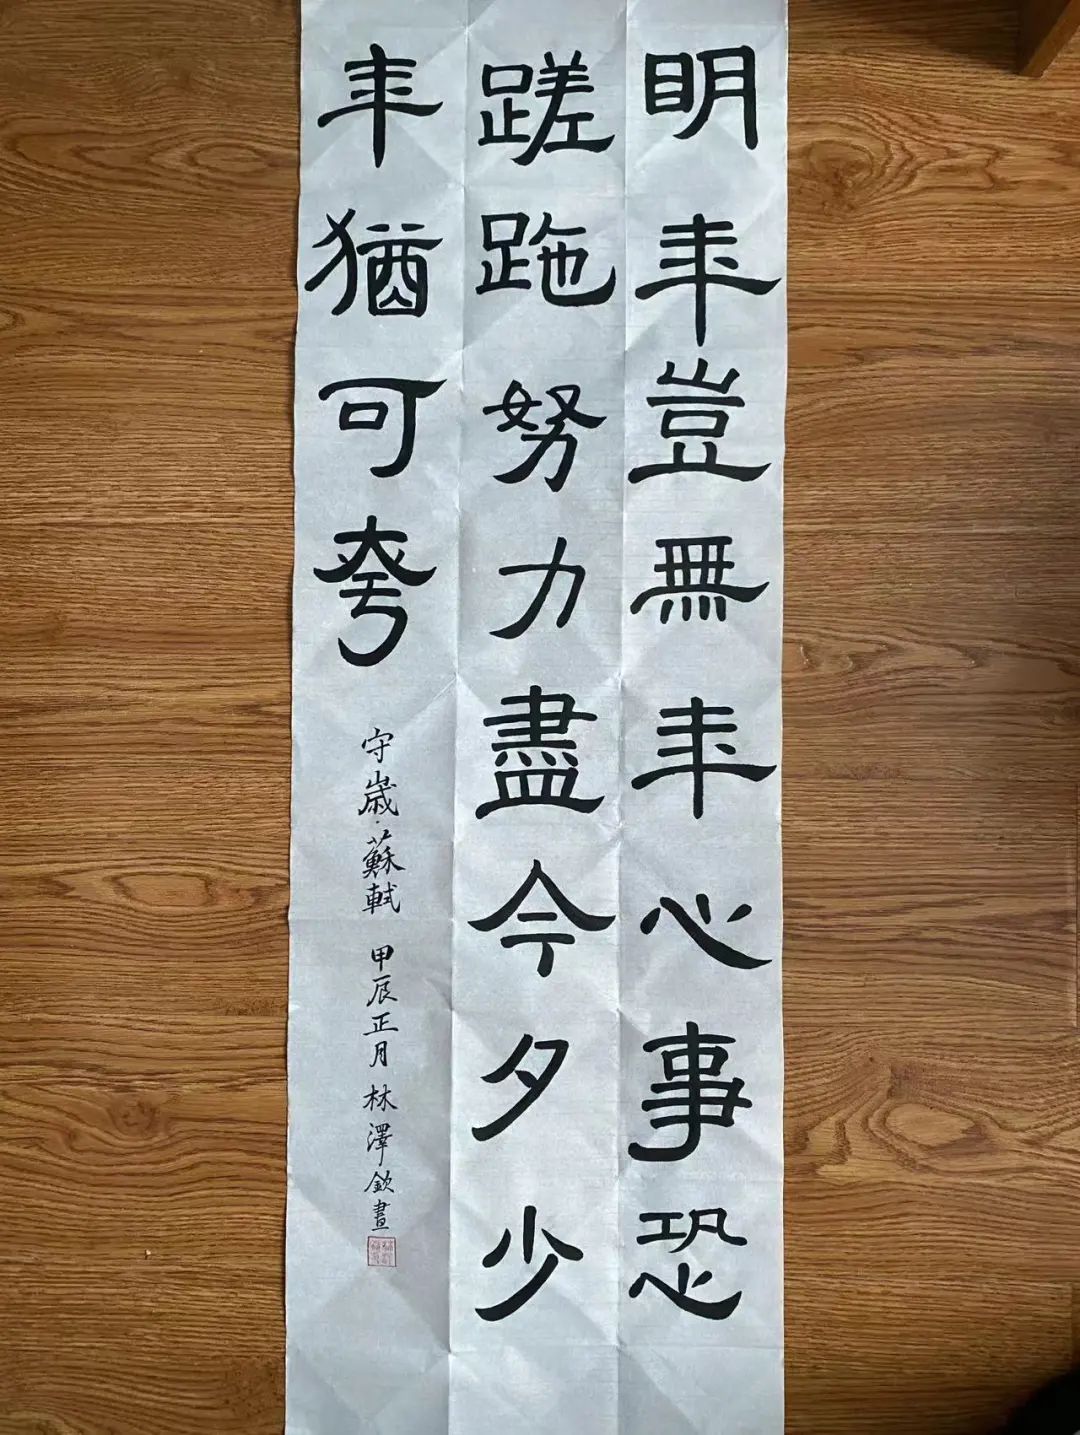 明年豈無年心事恐
蹉跎努力盡今夕少
年猶可夸
守歲·蘇軾 甲辰正月 林澤欽書